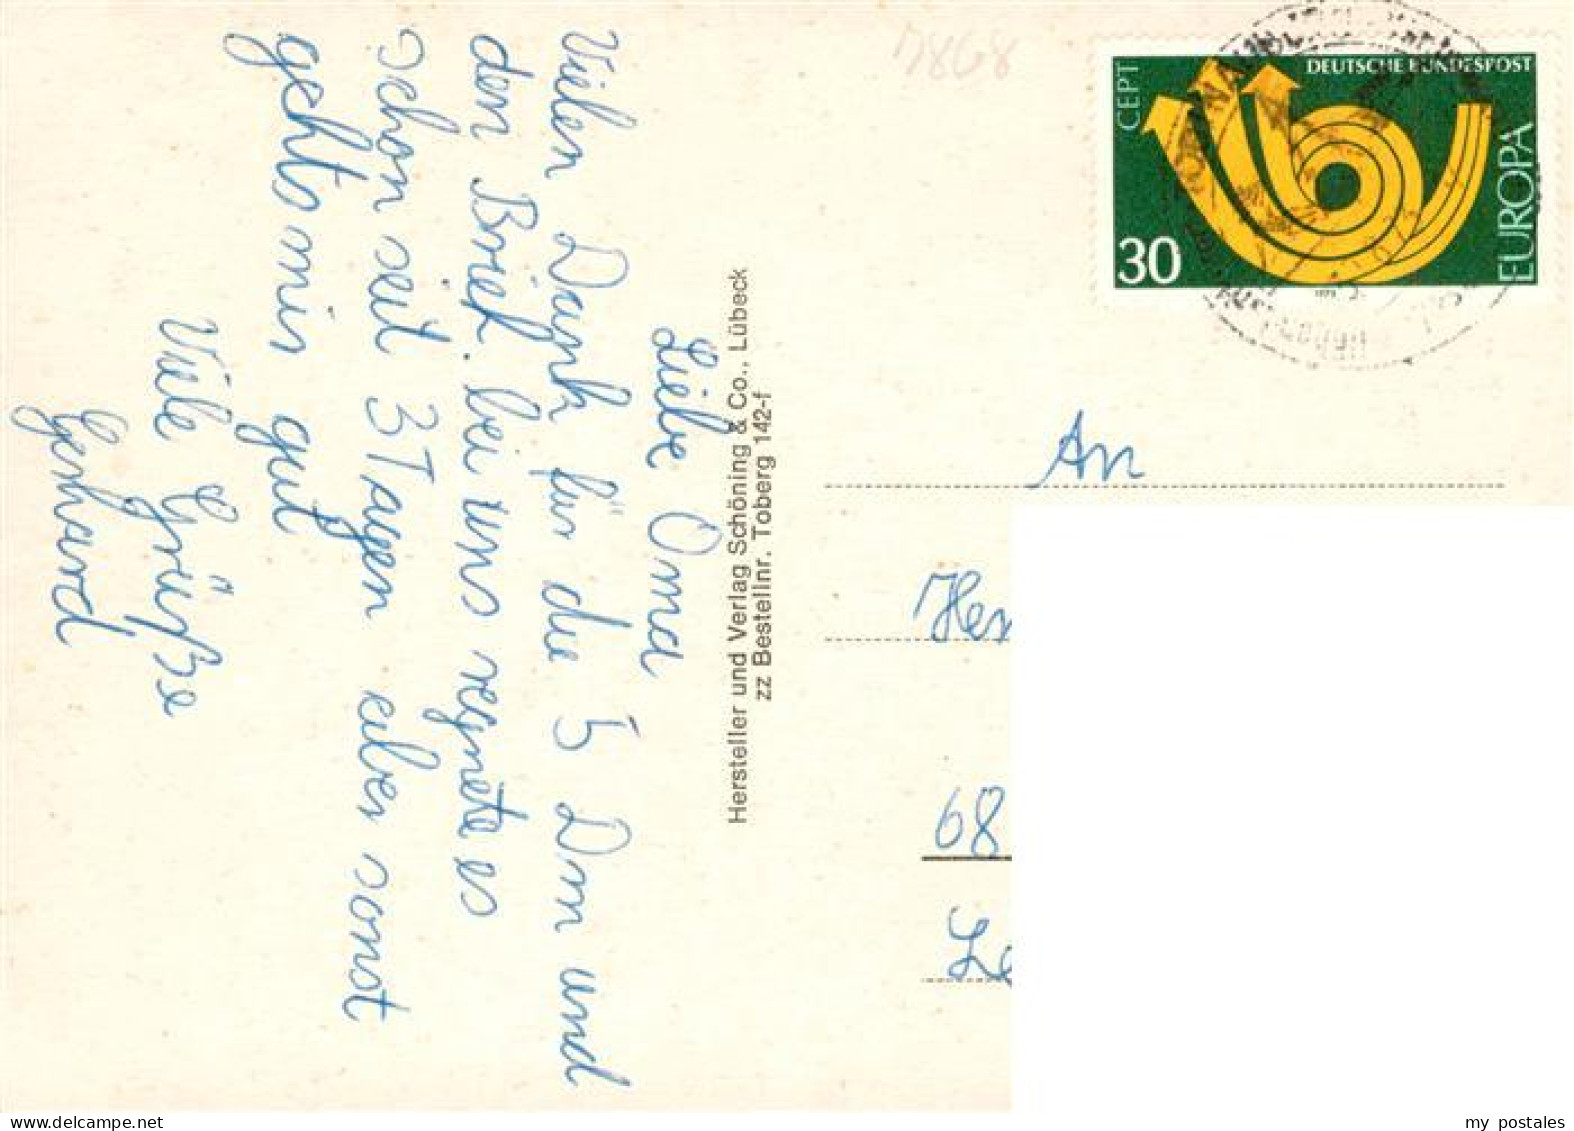 Liebe Oma
Vielen Dank für die 5 Dm und
den Brief. bei uns regnete es
schon seit 3 Tagen aber sonst
gehts mir gut
Viele Grüße
Gerhard
Hersteller und Verlag Schöning & Co., Lübeck
zz Bestellnr. Toberg 142-f
7868
CEPT
DEUTSCHE BUNDESPOST
EUROPA
30
1973
An
Her
68
Le
my postales